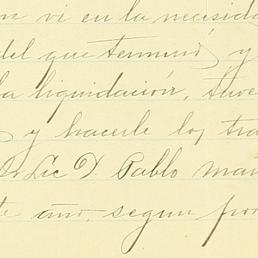 vi en la necesida
del que terminó y
la liquidación, tuve
y hacerle los tra
Sr Lic D. Pablo mar
te año, segun